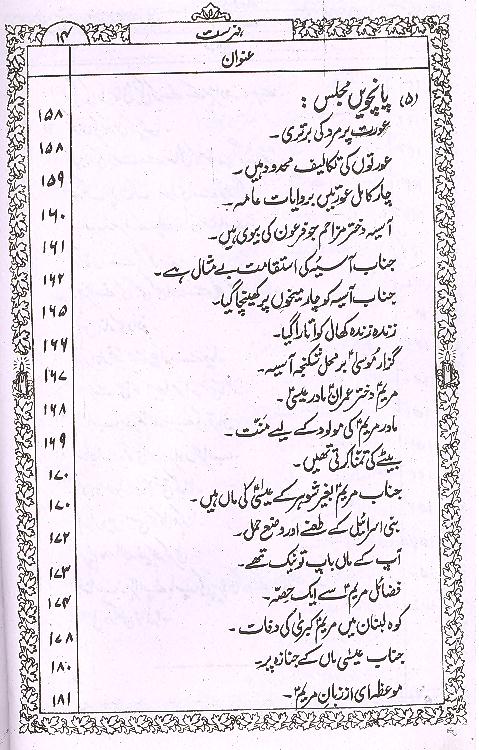 ۱۴ فہرست
عنوان
(۵) پانچویں مجلس :
عورت پر مرد کی برتری۔ ۱۵۸
عورتوں کی تکالیف محدود ہیں۔ ۱۵۸
چار کامل عورتیں بروایات عامہ۔ ۱۵۹
آسیہ دختر مزاحم جو فرعون کی بیوی ہیں۔ ۱۶۰
جناب آسیہؑ کی استقامت بے مثال ہے۔ ۱۶۱
جناب آسیہ کو چار میخوں پر کھینچا گیا۔ ۱۶۲
زندہ زندہ کھال کو اتارا گیا۔ ۱۶۵
گزار موسیٰؑ بر محل شکنجہ آسیہ۔ ۱۶۶
مریمؑ دختر عمرانؑ مادر عیسیٰؑ۔ ۱۶۷
مادر مریمؑ کی مولود کے لیے منّت۔ ۱۶۸
بیٹے کی تمنا کرتی تھیں۔ ۱۶۹
جناب مریمؑ بغیر شوہر کے عیسیٰؑ کی ماں ہیں۔ ۱۷۰
بنی اسرائیل کے طعنے اور وضع حمل۔ ۱۷۰
آپ کے ماں باپ تو نیک تھے۔ ۱۷۲
فضائل مریمؑ سے ایک حصّہ۔ ۱۷۳
کوہ لبنان میں مریمؑ کبریٰ کی وفات۔ ۱۷۴
جناب عیسیٰ ماں کے جنازہ پر۔ ۱۷۸
موعظہ ای از زبان مریمؑ۔ ۱۸۰
۱۸۱